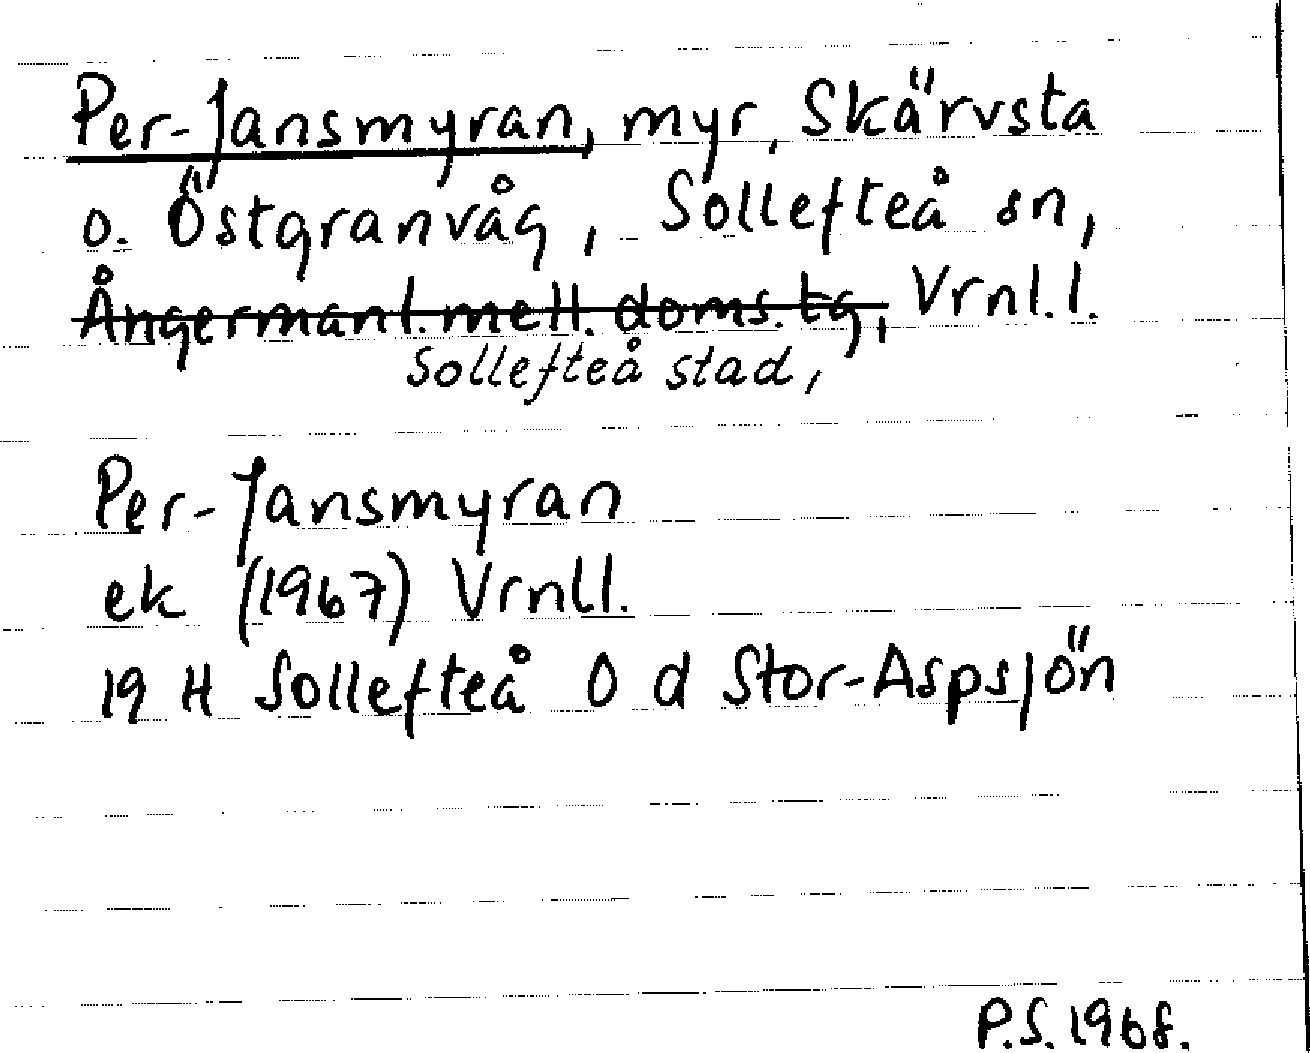 Per-Jansmyran, myr, Skärvsta
o. Östgranvåg, Sollefteå sn,
Ångermanl. mell. doms. tg, Vrnl. l.
Sollefteå stad,
Per-Jansmyran
ek (1967) Vrnll.
19 H Sollefteå O d Stor-Aspsjön
P.S. 1968.